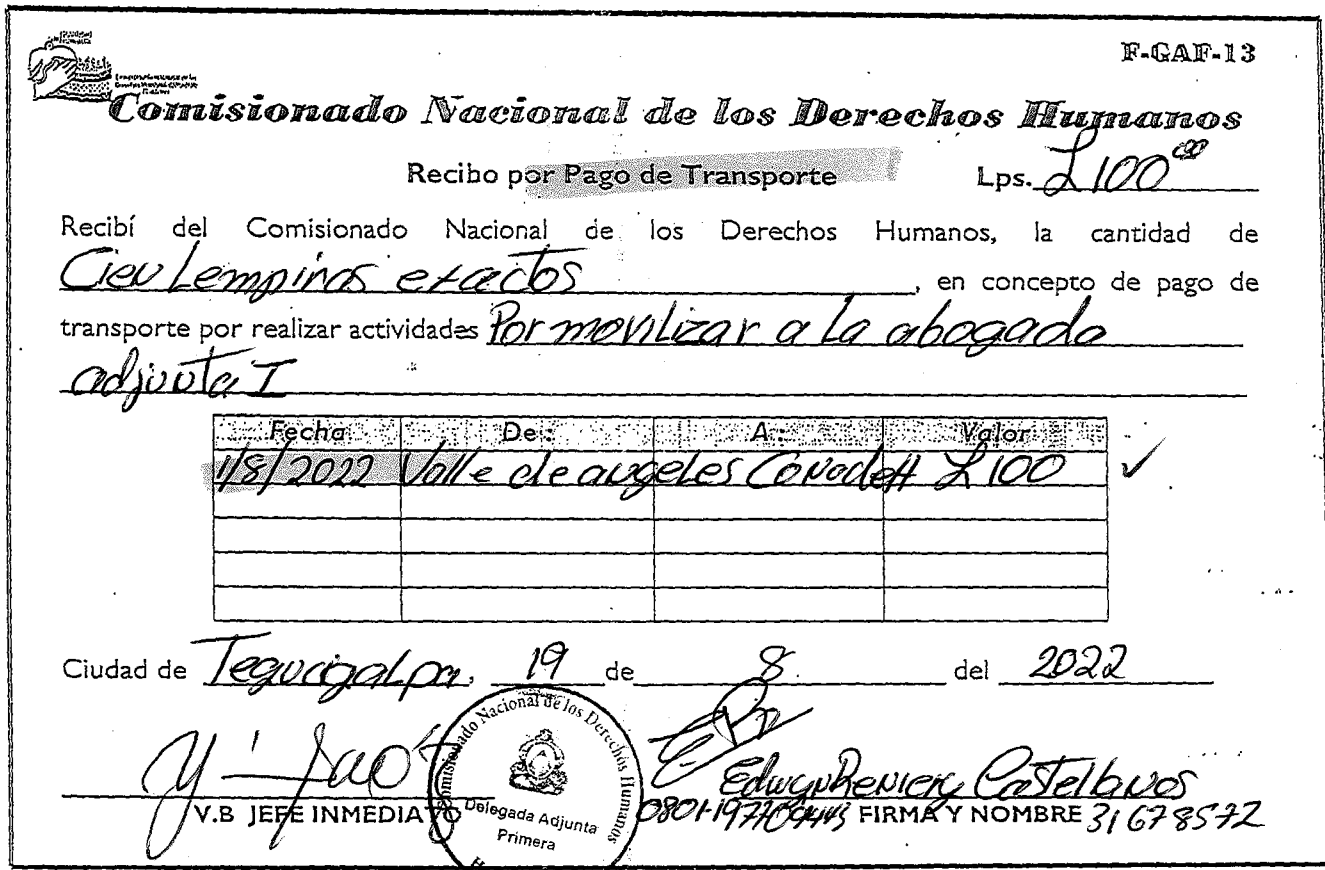 F-GAF-13
Comisionado Nacional de los Derechos Humanos
Recibo por Pago de Transporte Lps. L100.00
Recibí del Comisionado Nacional de los Derechos Humanos, la cantidad de
Cien Lempiras exactos, en concepto de pago de
transporte por realizar actividades Por movilizar a la abogada
adjunta I
Fecha De: A: Valor
1/8/2022 Valle de angeles Conadeh L100 ✓
Ciudad de Tegucigalpa, 19 de 8 del 2022
Comisionado Nacional de los Derechos Humanos
Delegada Adjunta
Primera
Edwyn Reniery Castellanos
V.B JEFE INMEDIATO FIRMA Y NOMBRE 31678572